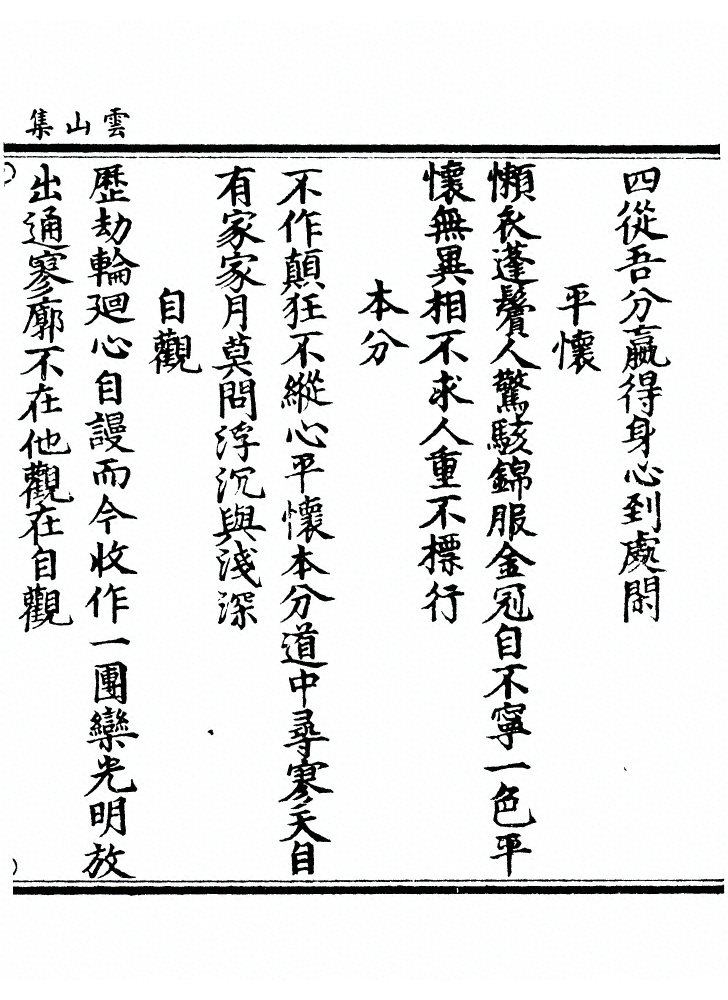 雲山集
四從吾分贏得身心到處閑
平懷
懶衣蓬鬢人驚駭錦服金冠自不寧一色平
懷無異相不求人重不摽行
本分
不作顛狂不縱心平懷本分道中尋寥天自
有家家月莫問浮沉與淺深
自觀
歷劫輪廻心自謾而今收作一團欒光明放
出通寥廓不在他觀在自觀